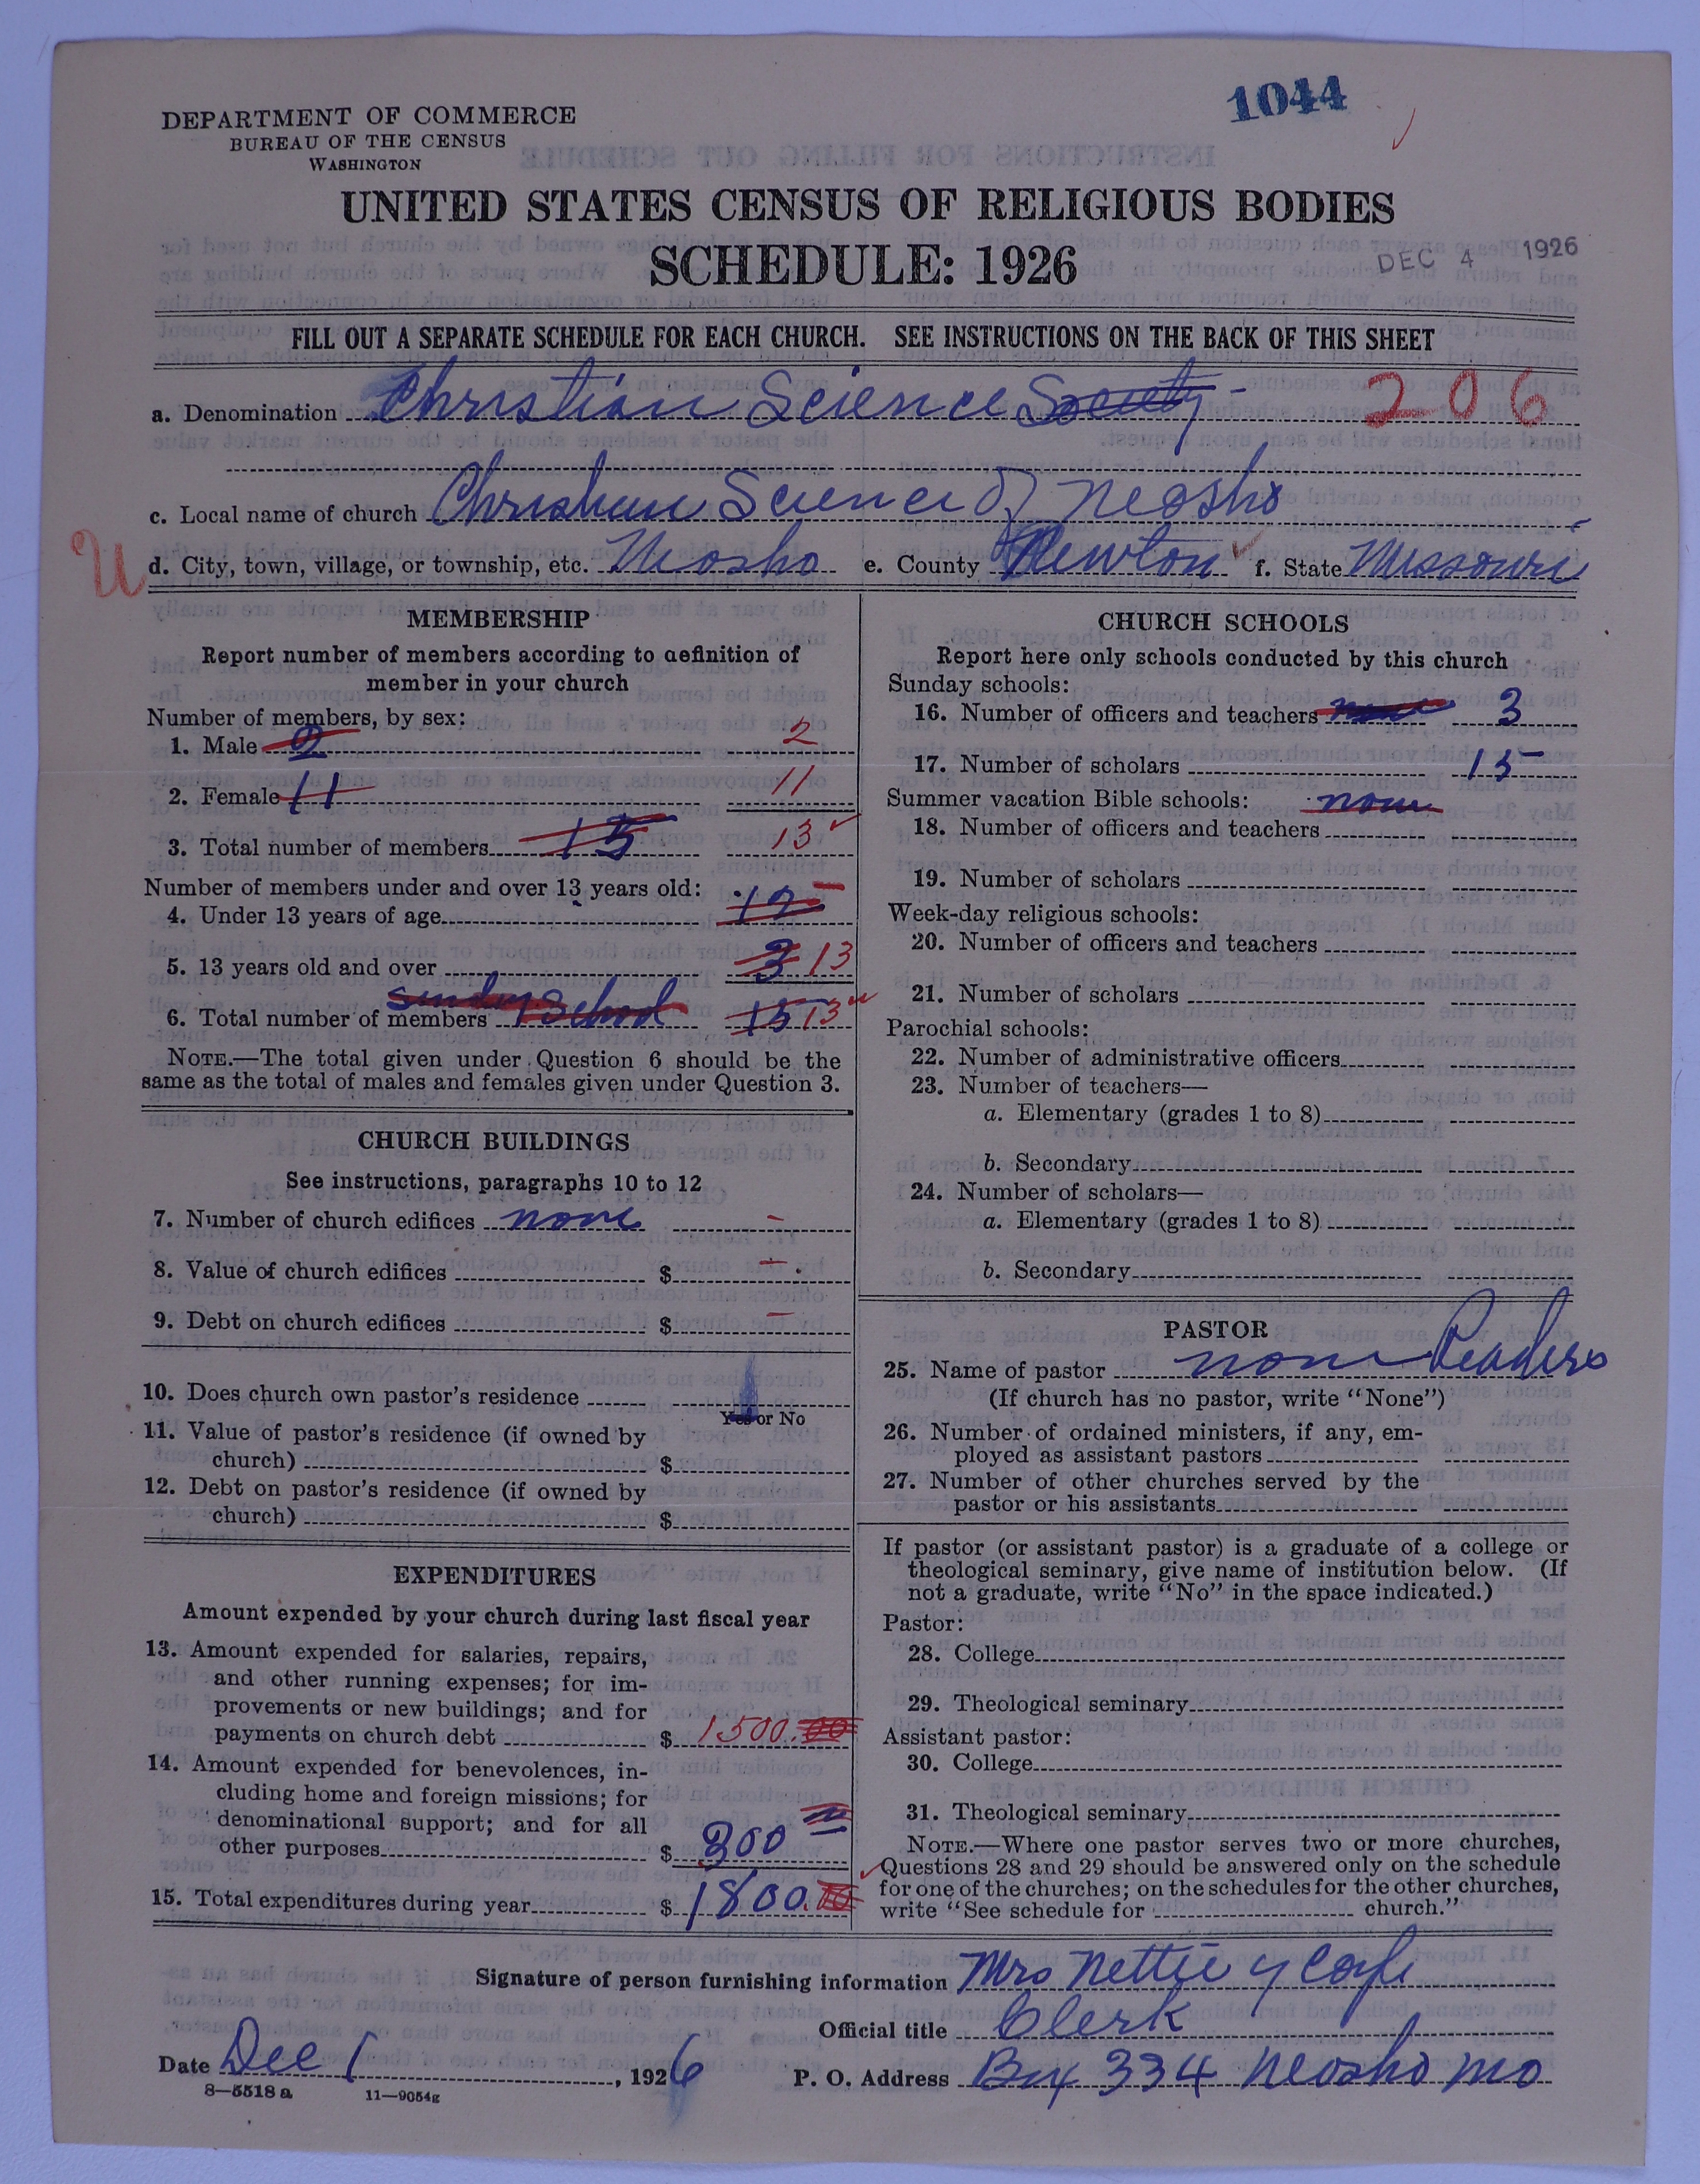 1044
DEPARTMENT OF COMMERCE
BUREAU OF THE CENSUS
WASHINGTON
UNITED STATES CENSUS OF RELIGIOUS BODIES
SCHEDULE: 1926
DEC 4 1926
FILL OUT A SEPARATE SCHEDULE FOR EACH CHURCH. SEE INSTRUCTIONS ON THE BACK OF THIS SHEET
a. Denomination Christian Science Society - 206
c. Local name of church Christian Science of Neosho
U
d. City, town, village, or township, etc. Neosho e. County Newton f. State Missouri
MEMBERSHIP
Report number of members according to definition of
member in your church
Number of members, by sex:
1. Male 2 2
2. Female 11 11
3. Total number of members 15 13
Number of members under and over 13 years old:
4. Under 13 years of age 12 -
5. 13 years old and over 3 13
6. Total number of members Sunday School 15 13
NOTE.—The total given under Question 6 should be the
same as the total of males and females given under Question 3.
CHURCH BUILDINGS
See instructions, paragraphs 10 to 12
7. Number of church edifices none -
8. Value of church edifices $ -
9. Debt on church edifices $ -
10. Does church own pastor's residence
Yes or No
11. Value of pastor's residence (if owned by
church) $
12. Debt on pastor's residence (if owned by
church) $
EXPENDITURES
Amount expended by your church during last fiscal year
13. Amount expended for salaries, repairs,
and other running expenses; for im-
provements or new buildings; and for
payments on church debt $ 1500.00
14. Amount expended for benevolences, in-
cluding home and foreign missions; for
denominational support; and for all
other purposes $ 300
15. Total expenditures during year $ 1800.00
CHURCH SCHOOLS
Report here only schools conducted by this church
Sunday schools:
16. Number of officers and teachers none 3
17. Number of scholars 15
Summer vacation Bible schools: none
18. Number of officers and teachers
19. Number of scholars
Week-day religious schools:
20. Number of officers and teachers
21. Number of scholars
Parochial schools:
22. Number of administrative officers
23. Number of teachers—
a. Elementary (grades 1 to 8)
b. Secondary
24. Number of scholars—
a. Elementary (grades 1 to 8)
b. Secondary
PASTOR
25. Name of pastor none Readers
(If church has no pastor, write "None")
26. Number of ordained ministers, if any, em-
ployed as assistant pastors
27. Number of other churches served by the
pastor or his assistants
If pastor (or assistant pastor) is a graduate of a college or
theological seminary, give name of institution below. (If
not a graduate, write "No" in the space indicated.)
Pastor:
28. College
29. Theological seminary
Assistant pastor:
30. College
31. Theological seminary
NOTE.—Where one pastor serves two or more churches,
Questions 28 and 29 should be answered only on the schedule
for one of the churches; on the schedules for the other churches,
write "See schedule for church."
Signature of person furnishing information Mrs Nettie Y
Official title Clerk
Date Dec 1, 1926 P. O. Address Box 334 Neosho Mo
8—5518 a 11—9054g